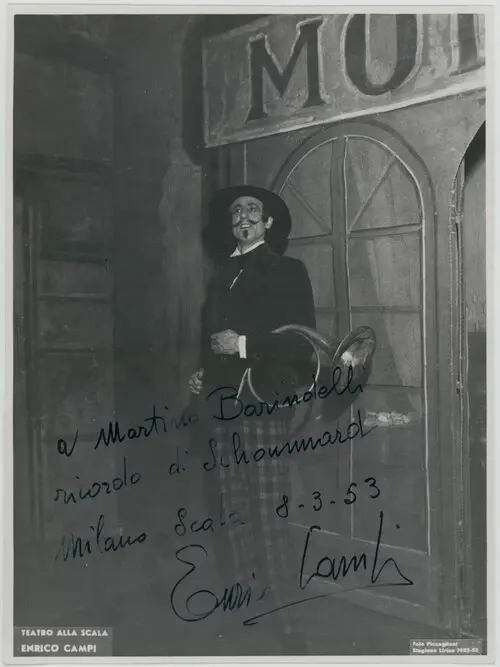 MO
a Martino Barindelli
ricordo di Schounnard
Milano Scala 8-3-53
Enrico Campi
TEATRO ALLA SCALA
ENRICO CAMPI
Foto Piccagliani
Stagione Lirica 1952-53